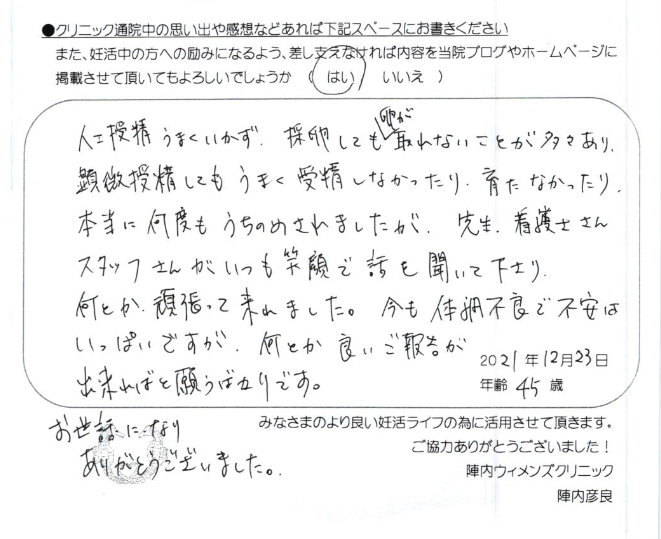 ●クリニック通院中の思い出や感想などあれば下記スペースにお書きください
また、妊活中の方への励みになるよう、差し支えなければ内容を当院ブログやホームページに
掲載させて頂いてもよろしいでしょうか ( はい いいえ )
人工授精うまくいかず、採卵しても卵が取れないことが多々あり、
顕微授精してもうまく受精しなかったり、育たなかったり、
本当に何度もうちのめされましたが、先生、看護士さん
スタッフさんがいつも笑顔で話を聞いて下さり、
何とか頑張って来れました。今も体調不良で不安は
いっぱいですが、何とか良いご報告が
出来ればと願うばかりです。
2021年12月23日
年齢 45 歳
お世話になり
ありがとうございました。
みなさまのより良い妊活ライフの為に活用させて頂きます。
ご協力ありがとうございました！
陣内ウィメンズクリニック
陣内彦良